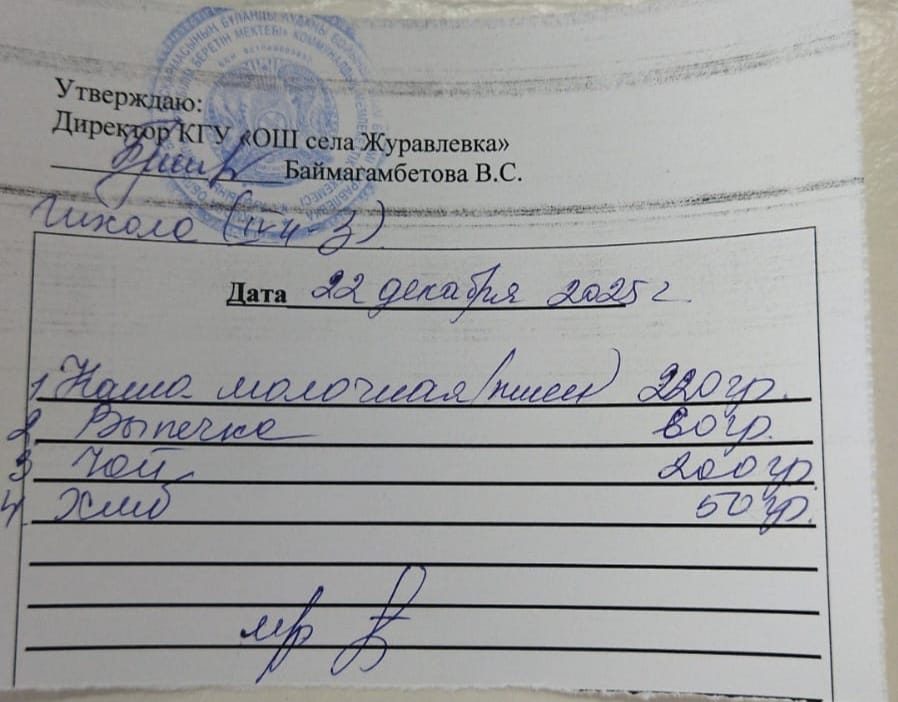 Утверждаю:
Директор КГУ «ОШ села Журавлевка»
Баймагамбетова В.С.
Школа
Дата 22 декабря 2025 г
1 Каша молочная (пшен) 220 гр.
2 Выпечка 60 гр.
3 Чай 200 гр.
4. Хлеб 50 гр.